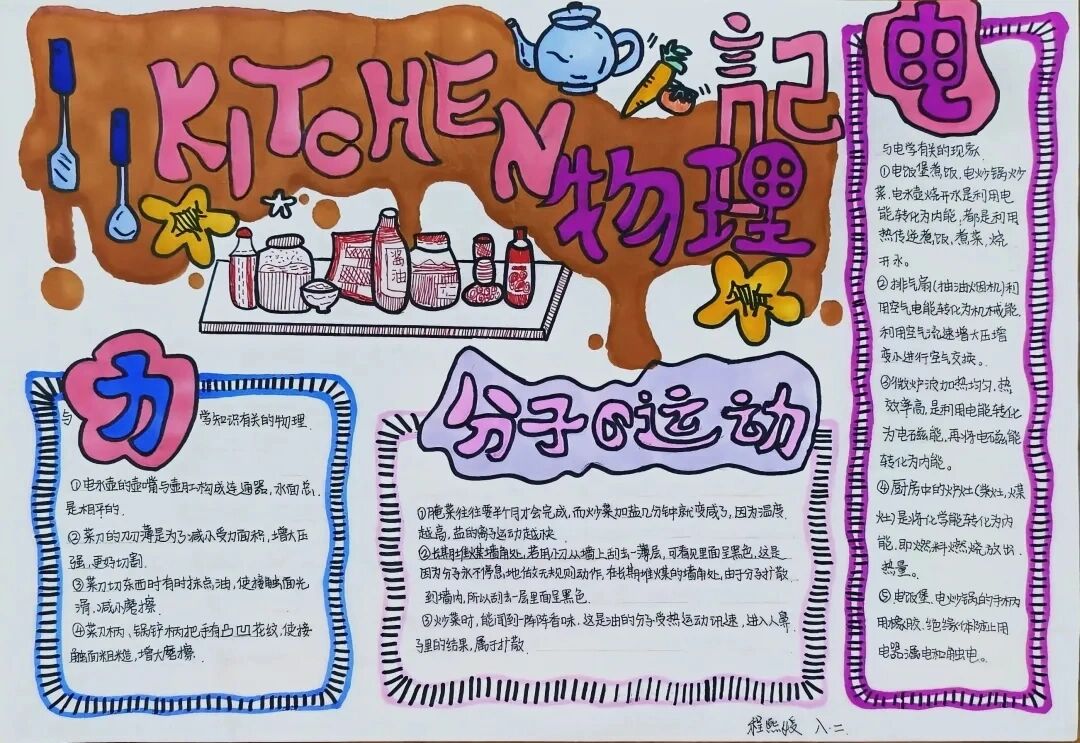 KITCHEN
物理
記
酱油
力
与 学知识有关的物理.
①电水壶的壶嘴与壶肚构成连通器,水面总
是相平的.
②菜刀的刀刃薄是为了减小受力面积,增大压
强,更好切割.
③菜刀切东西时有时抹点油,使接触面光
滑,减小磨擦.
④菜刀柄、锅铲柄把手有凸凹花纹,使接
触面粗糙,增大磨擦.
分子の运动
①腌菜往往要半个月才会完成,而炒菜加盐几分钟就变咸了,因为温度
越高,盐的离子运动越快.
②长期堆煤墙角处,若用小刀从墙上刮去一薄层,可看见里面呈黑色,这是
因为分子永不停息地做无规则动作,在长期堆煤的墙角处,由于分子扩散
到墙内,所以刮去一层里面呈黑色.
③炒菜时,能闻到一阵阵香味,这是油的分子受热运动讯速,进入人鼻
子里的结果,属于扩散.
电
与电学有关的现象.
①电饭堡煮饭、电炒锅炒
菜、电水壶烧开水是利用电
能转化为内能,都是利用
热传递煮饭、煮菜、烧
开水。
②排气扇(抽油烟机)利
用空气电能转化为机械能,
利用空气流速增大压增
变小进行空气交换。
③微炉波加热均匀,热
效率高,是利用电能转化
为电磁能,再将电磁能
转化为内能。
④厨房中的炉灶(柴灶,煤
灶)是将化学能转化为内
能,即燃料燃烧放出
热量。
⑤电饭堡、电炒锅的手柄
用橡胶、绝缘体防止用
电器漏电和触电。
程熙媛 八·二